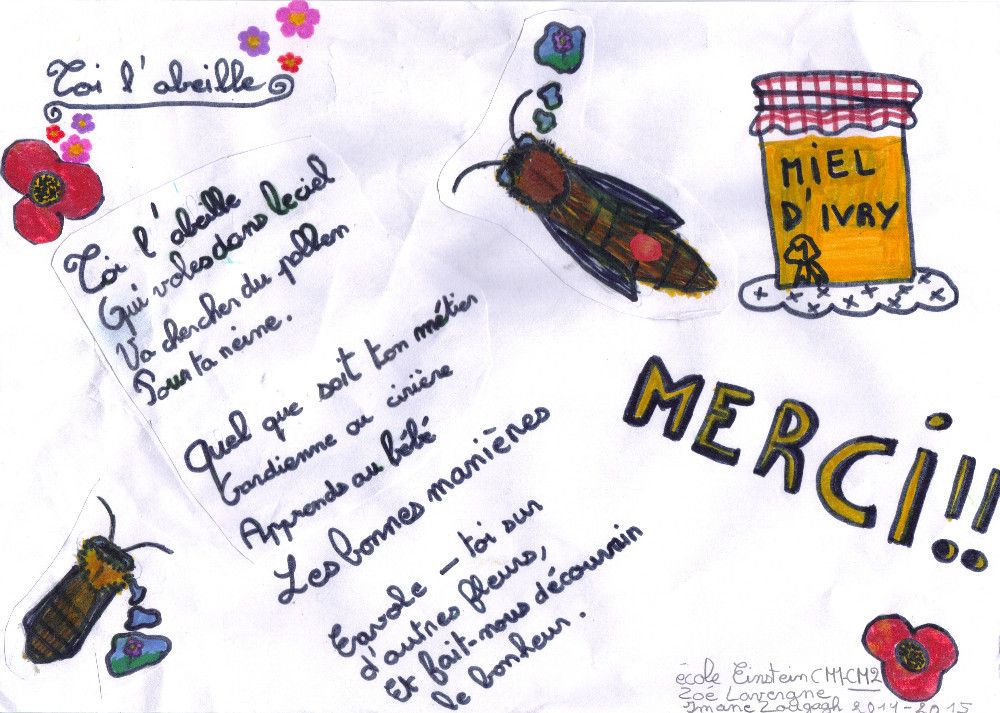 Toi l'abeille
Toi l'abeille
Qui voles dans le ciel
Va chercher du pollen
Pour ta reine.
Quel que soit ton métier
Gardienne ou cirière
Apprends au bébé
Les bonnes manières
Envole-toi sur
d'autres fleurs,
Et fait-nous découvrir
le bonheur.
MIEL
D'IVRY
MERCI!!
école Einstein CM1-CM2
Zoé Lavergne
Imane Zougagh 2014-2015